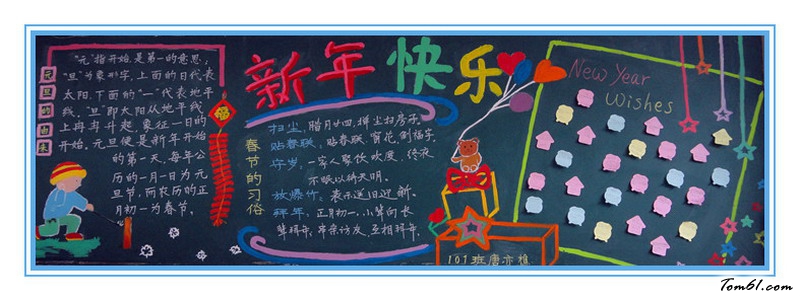 元旦的由来
"元"指开始,是第一的意思;
"旦"为象形字,上面的日代表
太阳,下面的"一"代表地平
线。"旦"即太阳从地平线
上冉冉升起,象征一日的
开始。元旦便是新年开始
的第一天。每年公
历的一月一日为元
旦节,而农历的正
月初一为春节。
新年快乐
春节的习俗
扫尘,腊月廿四,掸尘扫房子。
贴春联,贴春联,窗花,倒福字。
守岁,一家人聚饮欢度,终夜
不眠以待天明。
放爆竹,表示送旧迎新。
拜年,正月初一,小辈向长
辈拜年,串亲访友,互相拜年。
101班唐亦樵
New Year
Wishes
Tom61.com